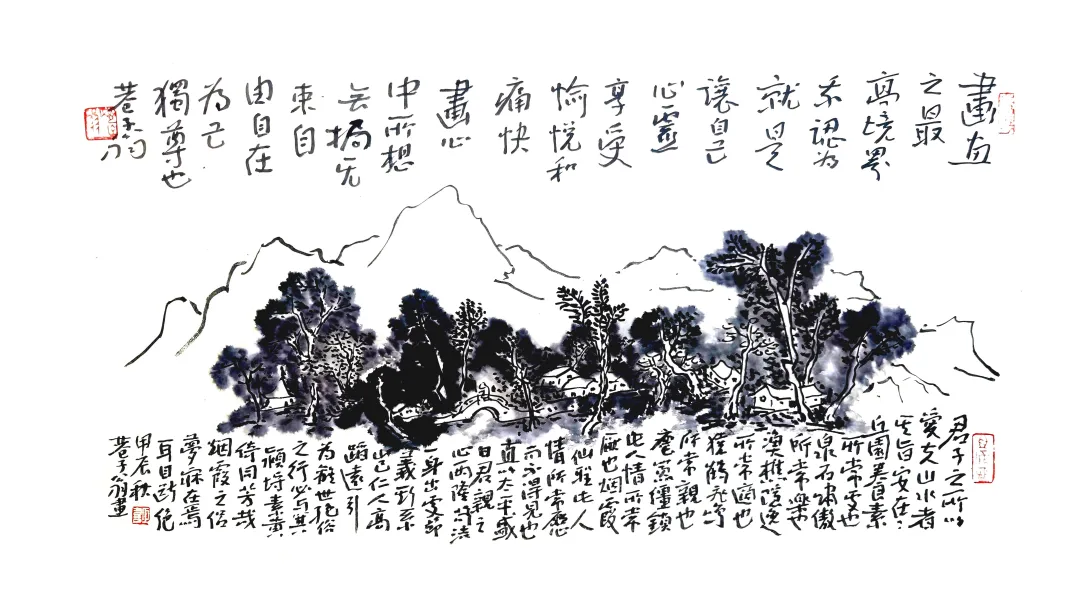 畫画
之最
高境界
系認為
就是
讓自己
心靈
享受
愉悅和
痛快
畫心
中所想
無拘无
束自
由自在
為己
獨尊也
巷子翁
君子之所以
愛夫山水者
其旨安在
丘園養素
所常處也
泉石嘯傲
所常樂也
漁樵隱逸
所常適也
猿鶴飛鳴
所常親也
塵囂韁鎖
此人情所常
厭也烟霞
仙聖此人
情所常愿
而不得見也
直以太平盛
日君親之
心兩隆苟潔
一身出處節
義斯系
豈仁人高
蹈遠引
為離世絕俗
之行必與箕
穎埒素黃
綺同芳哉
烟霞之侶
夢寐在焉
耳目斷絕
甲辰秋
巷子翁畫